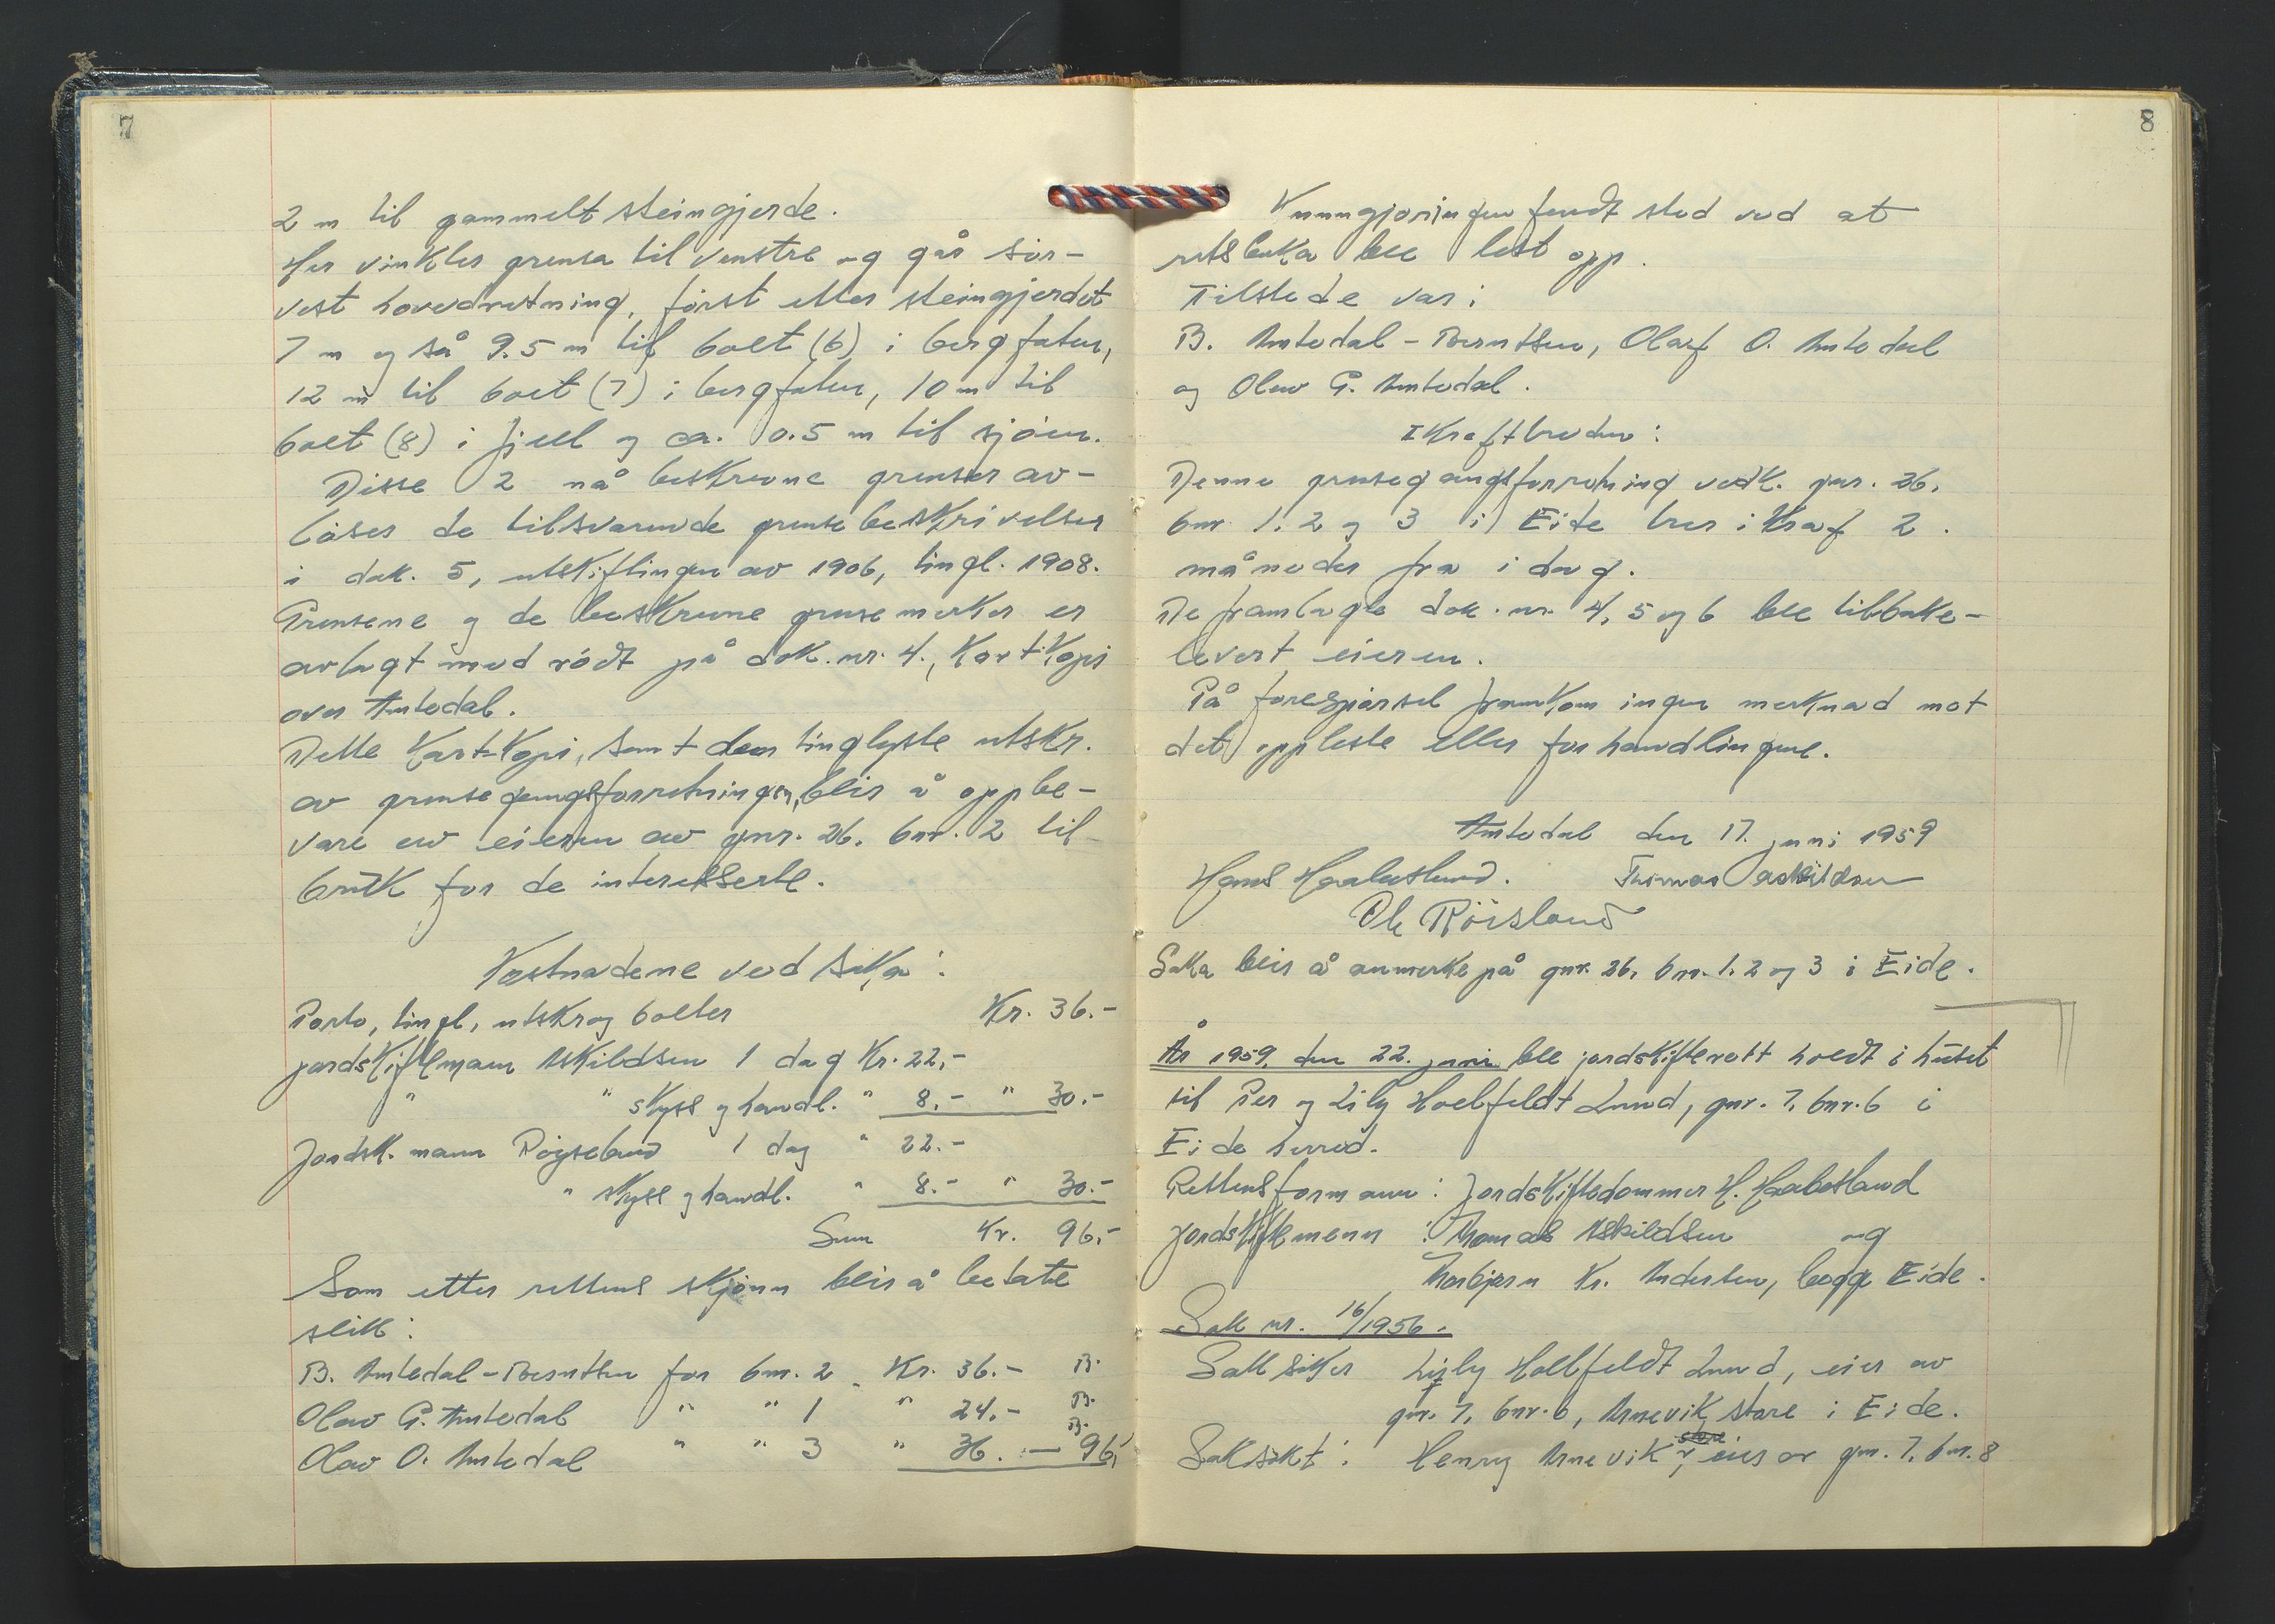 7
2 m til gammelt steingjerde.
Her vinkler grensa til venstre og går sør-
vest hovedretning, først etter steingjerdet
7 m og så 9.5 m til bolt (6) i bergfoten,
12 m til bolt (7) i bergfoten, 10 m til
bolt (8) i fjell og ca. 0.5 m til sjøen.
Disse 2 nå beskrevne grenser av-
løser de tilsvarende grensebeskrivelser
i dok. 5, utskiftingen av 1906, tingl. 1908.
Grensene og de beskrevne grensemerker er
avlagt med rødt på dok. nr. 4., Kart-Kopi
over Amtedal.
Dette Kart-Kopi, samt den tinglyste utskr.
av grensegangsforretningen, blir å oppbe-
vare av eieren av gnr. 26. bnr. 2 til
bruk for de interesserte.
Kostnadene ved saka:
Porto, tingl, utskr og bolter Kr. 36.-
jordskiftemann Askildsen 1 dag Kr. 22,-
" " skyss og handl. " 8.- " 30.-
Jordsk. mann Røyseland 1 dag " 22.-
" skyss og handl. " 8.- " 30.-
Sum Kr. 96,-
Som etter rettens skjønn blir å betale
slik:
B. Amtedal-Berntsen for bnr. 2 - Kr. 36.- B.
Olav G. Amtedal " " 1 " 24.- B.
Olav O. Amtedal " " 3 " 36.- B. 96,-
8
Kunngjøringen fandt sted ved at
rettsboka ble lest opp.
Tilstede var:
B. Amtedal-Berntsen, Olaf O. Amtedal
og Olav G. Amtedal.
IKrafttreden:
Denne grensegangsforretning vedk. gnr. 26,
bnr 1, 2 og 3 i Eide trer i Kraf 2.
måneder fra i dag.
De framlagte dok. nr. 4, 5 og 6 ble tilbake-
levert eieren.
På forespørsel framkom ingen merknad mot
det oppleste eller forhandlingene.
Amtedal den 17. juni 1959
Hans Haabesland. Thomas Askildsen
Ole Röisland
Saka blir å anmerke på gnr. 26, bnr. 1, 2 og 3 i Eide.
År 1959, den 22. juni ble jordskifterett holdt i huset
til Per og Lily Holfeldt Lund, gnr. 7, bnr. 6 i
Eide herred.
Rettens formann: Jordskiftedommer H. Haabesland
Jordskiftemenn: Thomas Askildsen og
Thorbjørn Kr. Andersen, begge Eide.
Sak nr. 16/1956.
Saksøker Lily Holfeldt Lund, eier av
gnr. 7, bnr. 6, Arnevik store i Eide.
Saksøkt: Henry Arnevik, eier av gnr. 7, bnr. 8